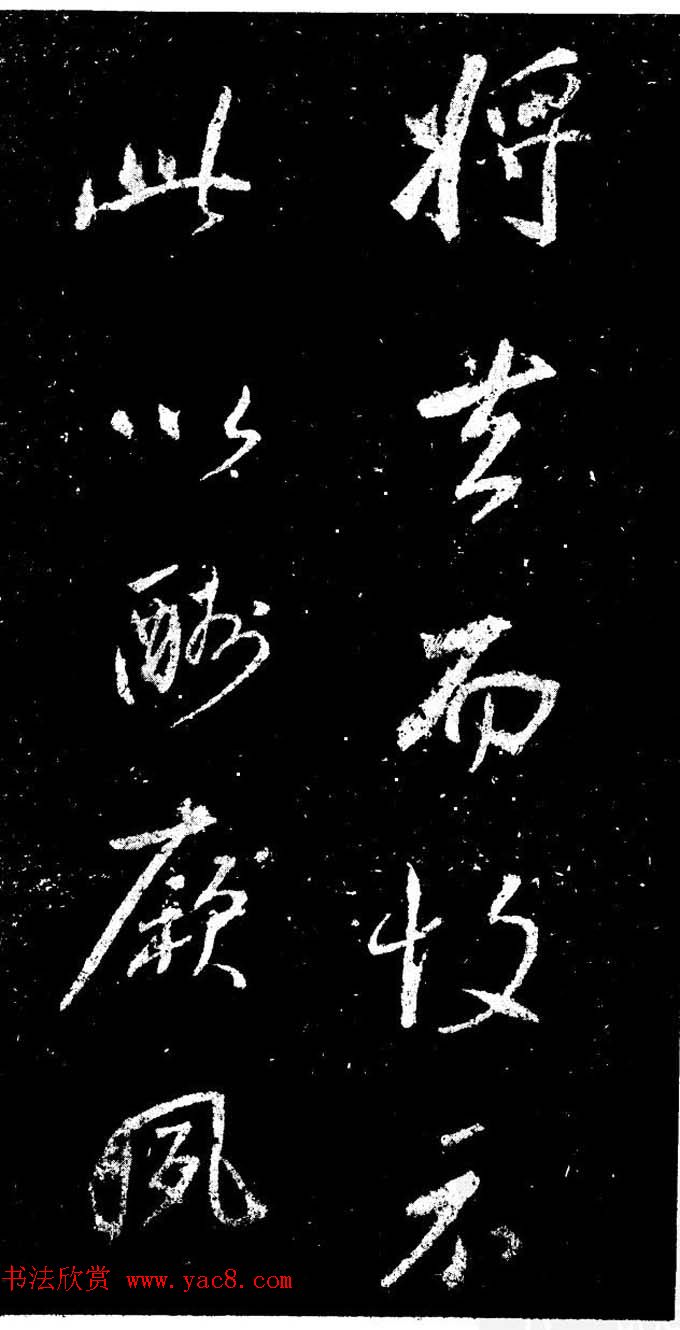 將去而收不
此以酬厥夙
书法欣赏 www.yac8.com